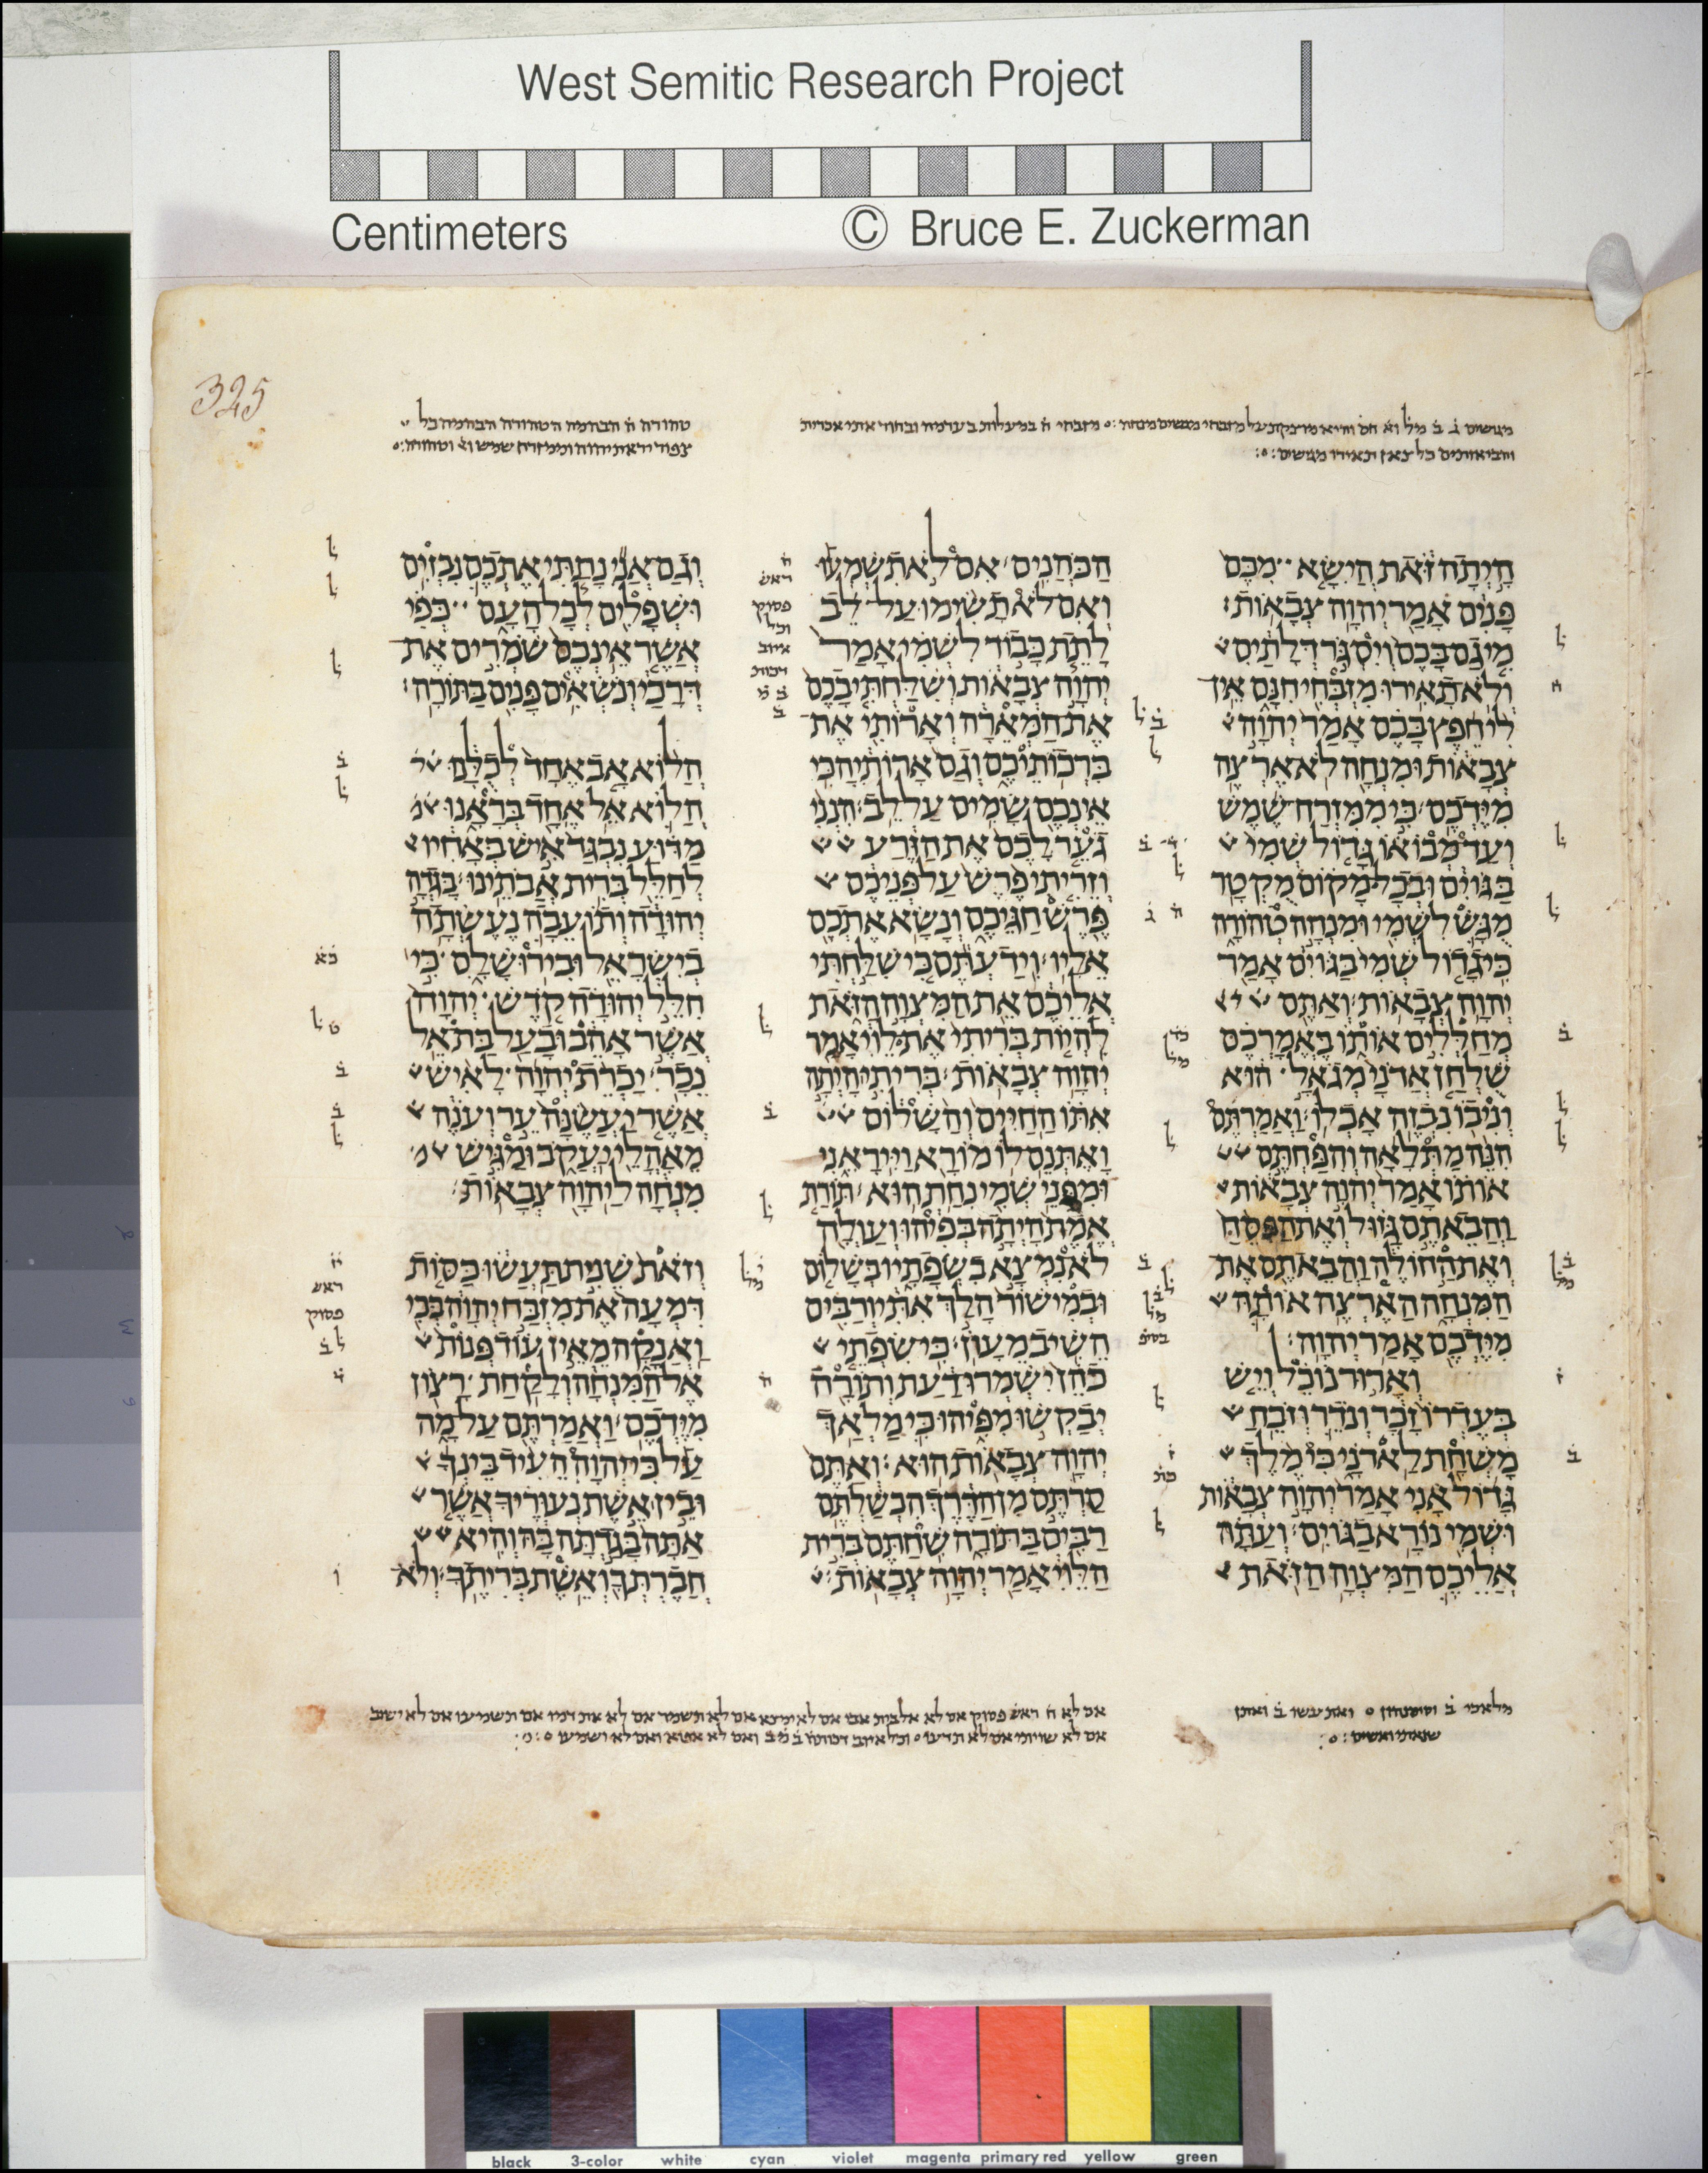 West Semitic Research Project
Centimeters © Bruce E. Zuckerman
325
טהורה ח הבהמה הטהורה הבהמה כל
צפור יראת יהוה וממזרח שמש
הָיְתָה זֹּאת הֲיִשָּׂא מִכֶּם
פָּנִים אָמַר יְהוָה צְבָאוֹת׃
מִי גַם בָּכֶם וְיִסְגֹּר דְּלָתַיִם
וְלֹא תָאִירוּ מִזְבְּחִי חִנָּם אֵין
לִי חֵפֶץ בָּכֶם אָמַר יְהוָה
צְבָאוֹת וּמִנְחָה לֹא אֶרְצֶה
מִיֶּדְכֶם׃ כִּי מִמִּזְרַח שֶׁמֶשׁ
וְעַד מְבוֹאוֹ גָּדוֹל שְׁמִי
בַּגּוֹיִם וּבְכָל מָקוֹם מֻקְטָר
מֻגָּשׁ לִשְׁמִי וּמִנְחָה טְהוֹרָה
כִּי גָדוֹל שְׁמִי בַּגּוֹיִם אָמַר
יְהוָה צְבָאוֹת׃ וְאַתֶּם
מְחַלְּלִים אוֹתוֹ בֶּאֱמָרְכֶם
שֻׁלְחַן אֲדֹנָי מְגֹאָל הוּא
וְנִיבוֹ נִבְזֶה אָכְלוֹ׃ וַאֲמַרְתֶּם
הִנֵּה מַתְּלָאָה וְהִפַּחְתֶּם
אוֹתוֹ אָמַר יְהוָה צְבָאוֹת
וַהֲבֵאתֶם גָּזוּל וְאֶת הַפִּסֵּחַ
וְאֶת הַחוֹלֶה וַהֲבֵאתֶם אֶת
הַמִּנְחָה הַאֶרְצֶה אוֹתָהּ
מִיֶּדְכֶם אָמַר יְהוָה׃
וְאָרוּר נוֹכֵל וְיֵשׁ
בְּעֶדְרוֹ זָכָר וְנֹדֵר וְזֹבֵחַ
מָשְׁחָת לַאדֹנָי כִּי מֶלֶךְ
גָּדוֹל אָנִי אָמַר יְהוָה צְבָאוֹת
וּשְׁמִי נוֹרָא בַגּוֹיִם׃ וְעַתָּה
אֲלֵיכֶם הַמִּצְוָה הַזֹּאת
הַכֹּהֲנִים׃ אִם לֹא תִשְׁמְעוּ
וְאִם לֹא תָשִׂימוּ עַל לֵב
לָתֵת כָּבוֹד לִשְׁמִי אָמַר
יְהוָה צְבָאוֹת וְשִׁלַּחְתִּי בָכֶם
אֶת הַמְּאֵרָה וְאָרוֹתִי אֶת
בִּרְכוֹתֵיכֶם וְגַם אָרוֹתִיהָ כִּי
אֵינְכֶם שָׂמִים עַל לֵב׃ הִנְנִי
גֹעֵר לָכֶם אֶת הַזֶּרַע
וְזֵרִיתִי פֶרֶשׁ עַל פְּנֵיכֶם
פֶּרֶשׁ חַגֵּיכֶם וְנָשָׂא אֶתְכֶם
אֵלָיו׃ וִידַעְתֶּם כִּי שִׁלַּחְתִּי
אֲלֵיכֶם אֵת הַמִּצְוָה הַזֹּאת
לִהְיוֹת בְּרִיתִי אֶת לֵוִי אָמַר
יְהוָה צְבָאוֹת׃ בְּרִיתִי הָיְתָה
אִתּוֹ הַחַיִּים וְהַשָּׁלוֹם
וָאֶתְּנֵם לוֹ מוֹרָא וַיִּירָאֵנִי
וּמִפְּנֵי שְׁמִי נִחַת הוּא׃ תּוֹרַת
אֱמֶת הָיְתָה בְּפִיהוּ וְעַוְלָה
לֹא נִמְצָא בִשְׂפָתָיו בְּשָׁלוֹם
וּבְמִישׁוֹר הָלַךְ אִתִּי וְרַבִּים
הֵשִׁיב מֵעָוֹן׃ כִּי שִׂפְתֵי
כֹהֵן יִשְׁמְרוּ דַעַת וְתוֹרָה
יְבַקְשׁוּ מִפִּיהוּ כִּי מַלְאַךְ
יְהוָה צְבָאוֹת הוּא׃ וְאַתֶּם
סַרְתֶּם מִן הַדֶּרֶךְ הִכְשַׁלְתֶּם
רַבִּים בַּתּוֹרָה שִׁחַתֶּם בְּרִית
הַלֵּוִי אָמַר יְהוָה צְבָאוֹת׃
וְגַם אֲנִי נָתַתִּי אֶתְכֶם נִבְזִים
וּשְׁפָלִים לְכָל הָעָם כְּפִי
אֲשֶׁר אֵינְכֶם שֹׁמְרִים אֶת
דְּרָכַי וְנֹשְׂאִים פָּנִים בַּתּוֹרָה׃
הֲלוֹא אָב אֶחָד לְכֻלָּנוּ
הֲלוֹא אֵל אֶחָד בְּרָאָנוּ
מַדּוּעַ נִבְגַּד אִישׁ בְּאָחִיו
לְחַלֵּל בְּרִית אֲבֹתֵינוּ׃ בָּגְדָה
יְהוּדָה וְתוֹעֵבָה נֶעֶשְׂתָה
בְיִשְׂרָאֵל וּבִירוּשָׁלִָם כִּי
חִלֵּל יְהוּדָה קֹדֶשׁ יְהוָה
אֲשֶׁר אָהֵב וּבָעַל בַּת אֵל
נֵכָר׃ יַכְרֵת יְהוָה לָאִישׁ
אֲשֶׁר יַעֲשֶׂנָּה עֵר וְעֹנֶה
מֵאָהֳלֵי יַעֲקֹב וּמַגִּישׁ
מִנְחָה לַיהוָה צְבָאוֹת׃
וְזֹאת שֵׁנִית תַּעֲשׂוּ כַּסּוֹת
דִּמְעָה אֶת מִזְבַּח יְהוָה בְּכִי
וַאֲנָקָה מֵאֵין עוֹד פְּנוֹת
אֶל הַמִּנְחָה וְלָקַחַת רָצוֹן
מִיֶּדְכֶם׃ וַאֲמַרְתֶּם עַל מָה
עַל כִּי יְהוָה הֵעִיד בֵּינְךָ
וּבֵין אֵשֶׁת נְעוּרֶיךָ אֲשֶׁר
אַתָּה בָּגַדְתָּה בָּהּ וְהִיא
חֲבֶרְתְּךָ וְאֵשֶׁת בְּרִיתֶךָ׃ וְלֹא
אם לא ח ראש פסוק אם לא
black 3-color white cyan violet magenta primary red yellow green